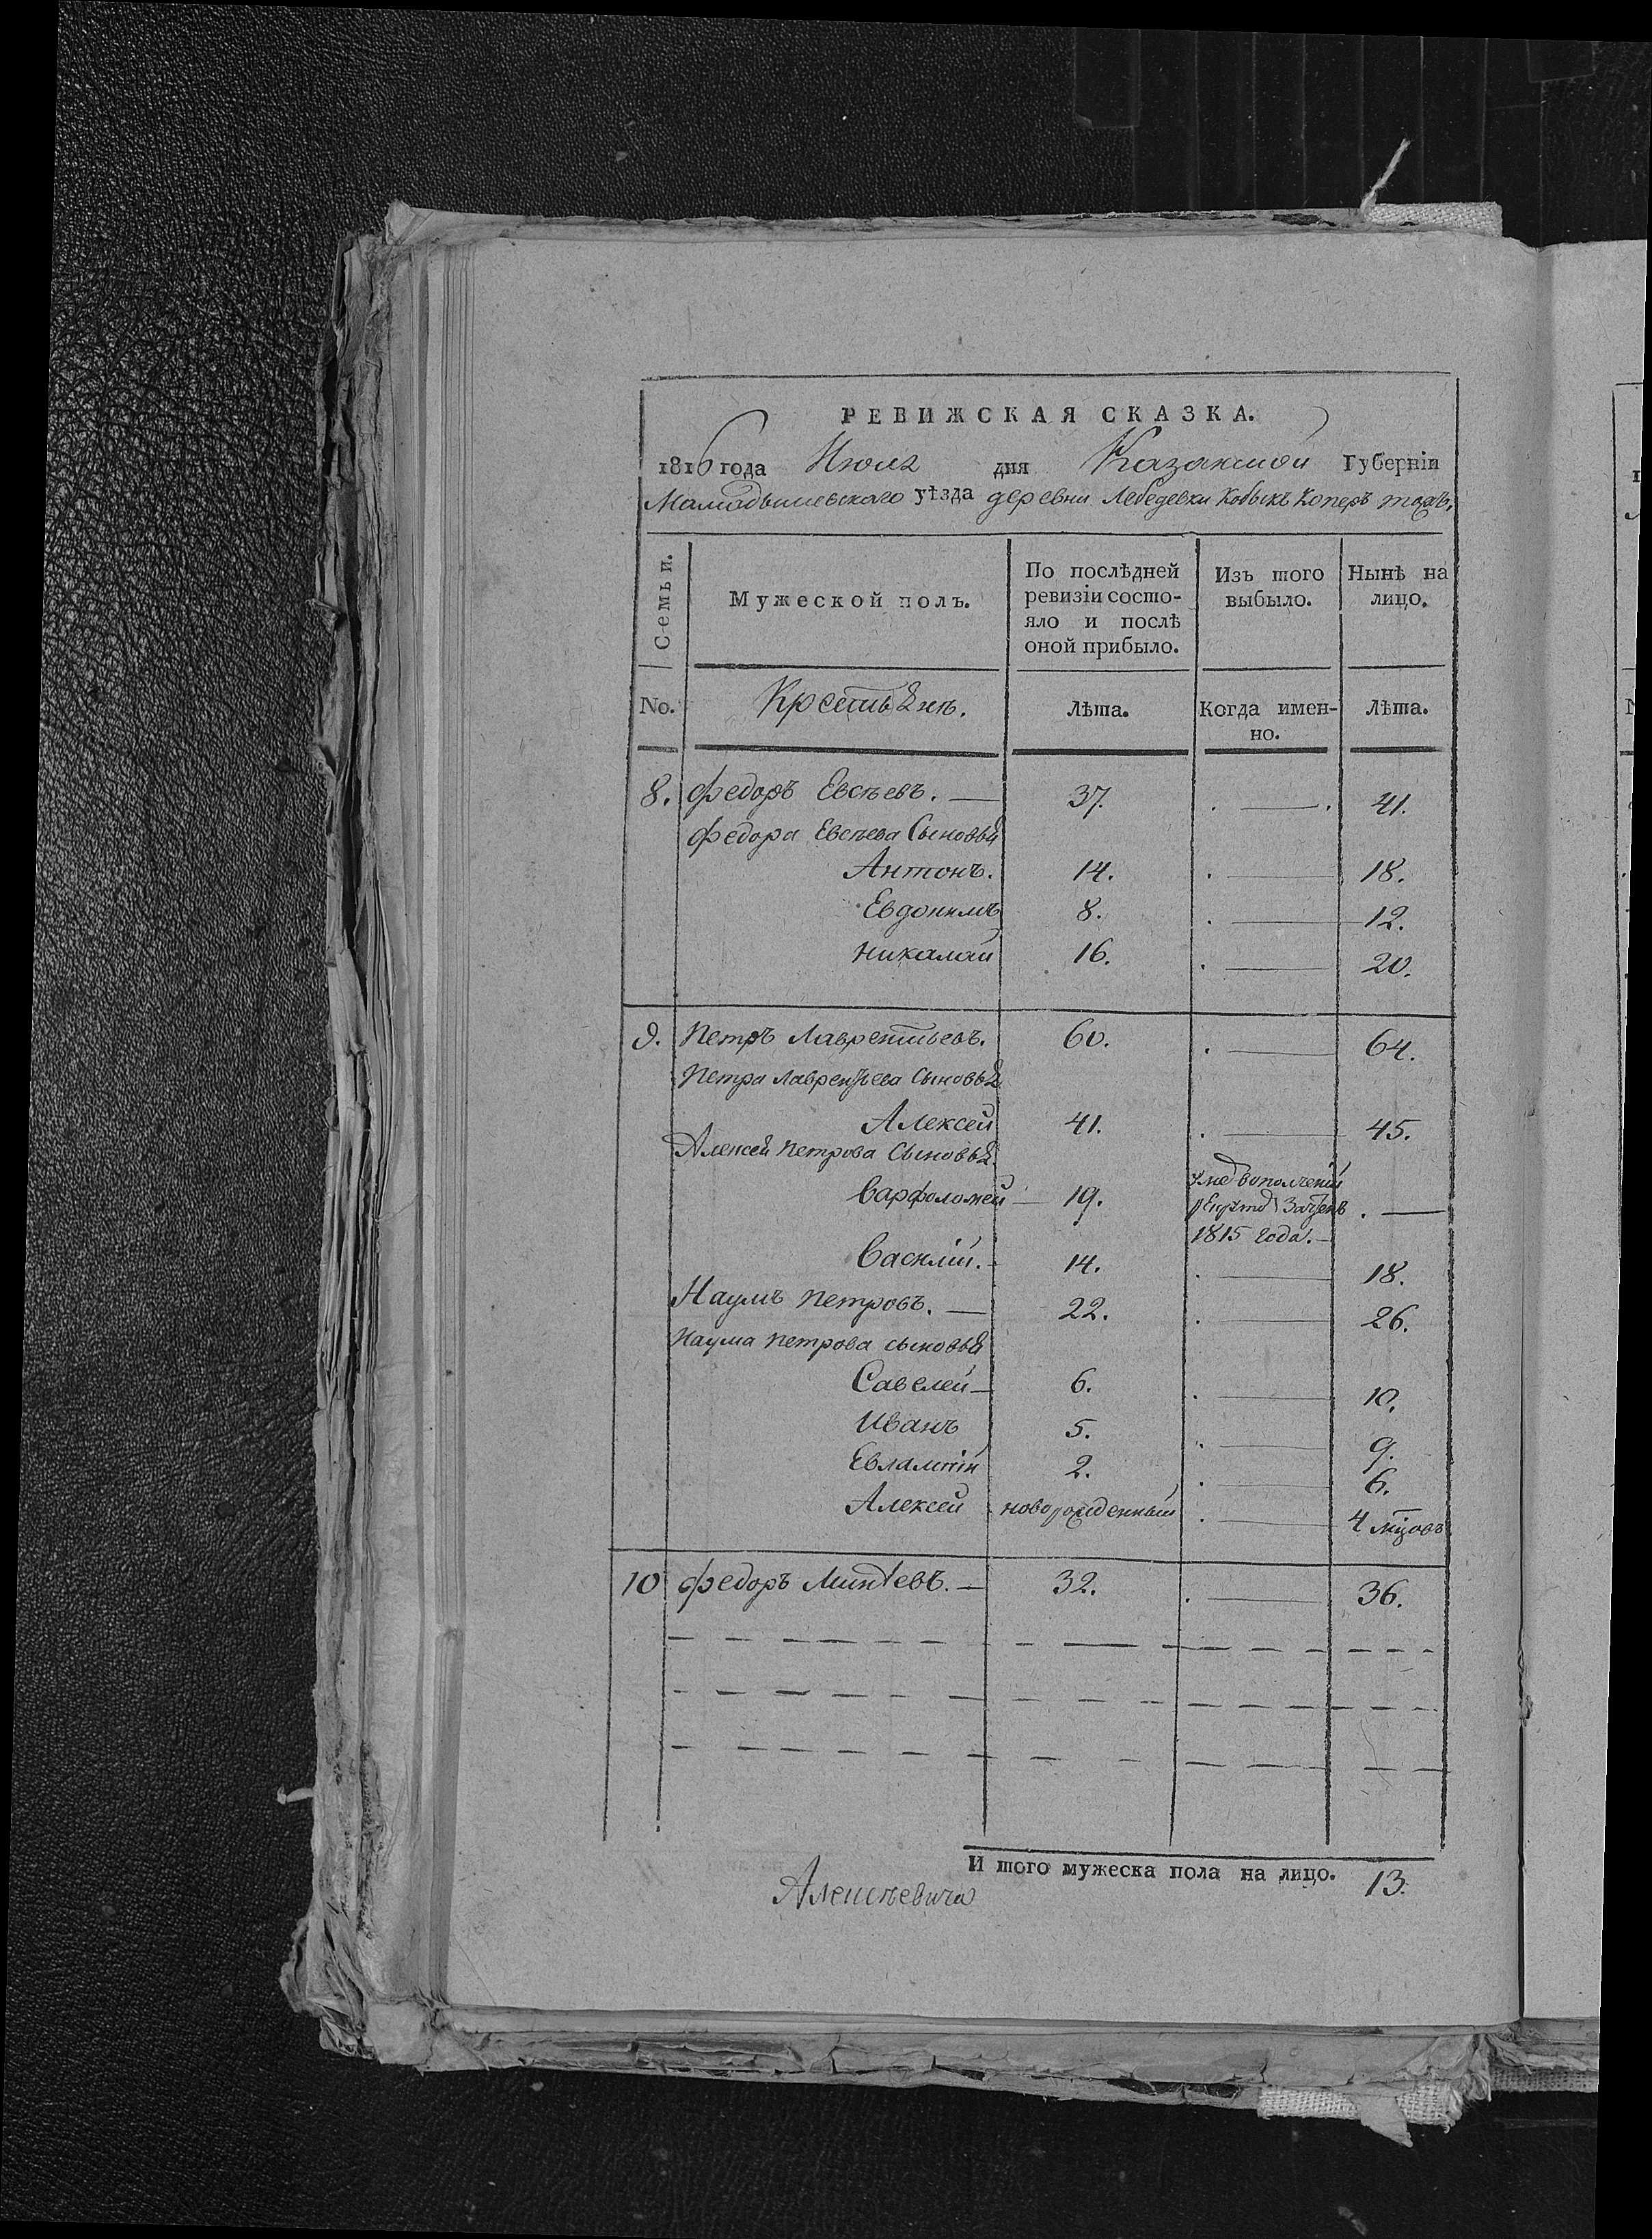 РЕВИЖСКАЯ СКАЗКА.
1816 года Июля дня Казанской Губерніи
Мамадышевскаго уѣзда деревни Лебедевки Кобыкъ Коперъ тожъ.
Семьи. Мужеской полъ. По послѣдней ревизіи состояло и послѣ оной прибыло. Изъ того выбыло. Нынѣ на лицо.
No. Крестьянъ. Лѣта. Когда именно. Лѣта.
8. Федоръ Евсѣевъ. — 37. . — . 41.
Федора Евсѣева Сыновья
Антонъ. 14. . — 18.
Евдокимъ 8. . — 12.
Николай 16. . — 20.
9. Петръ Лаврентьевъ. 60. . — 64.
Петра Лаврентьева Сыновья
Алексей 41. . — 45.
Алексея Петрова Сыновья
Варфоломей — 19. 1815 года. — . —
Василій. 14. . — 18.
Наумъ Петровъ. — 22. . — 26.
Наума Петрова сыновья
Савелей — 6. . — 10.
Иванъ 5. . — 9.
Евлампій 2. . — 6.
Алексей новорожденный . — 4 мцовъ
10 Федоръ Минѣевъ. — 32. . — 36.
И того мужеска пола на лицо. 13.